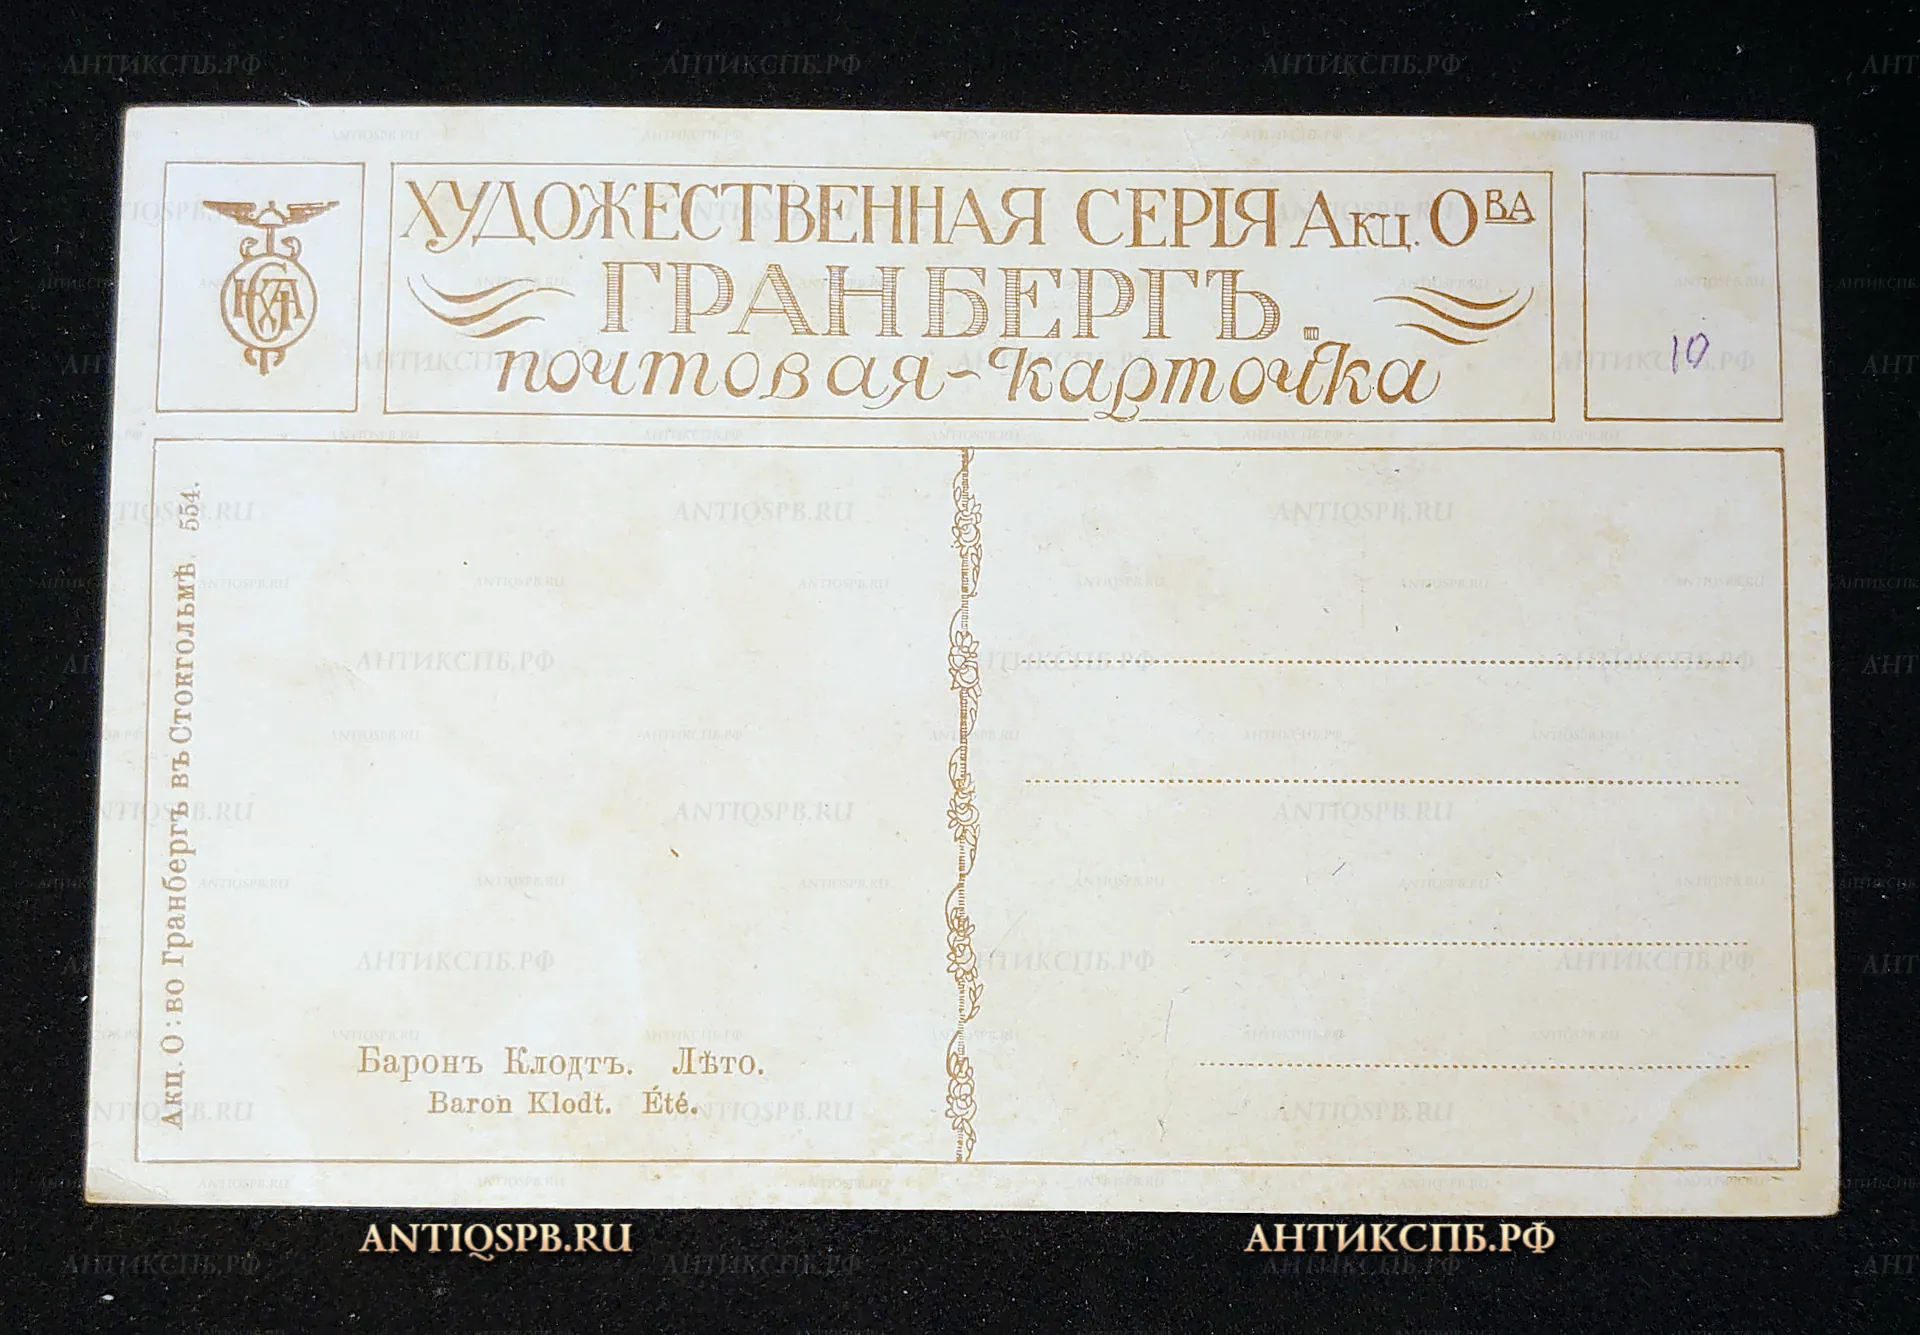 ХУДОЖЕСТВЕННАЯ СЕРІЯ Акц. Ова
ГРАНБЕРГЪ.
почтовая-карточка
10
Акц. О:во Гранбергъ въ Стокгольмѣ. 554.
Баронъ Клодтъ. Лѣто.
Baron Klodt. Été.
ANTIQSPB.RU
АНТИКСПБ.РФ